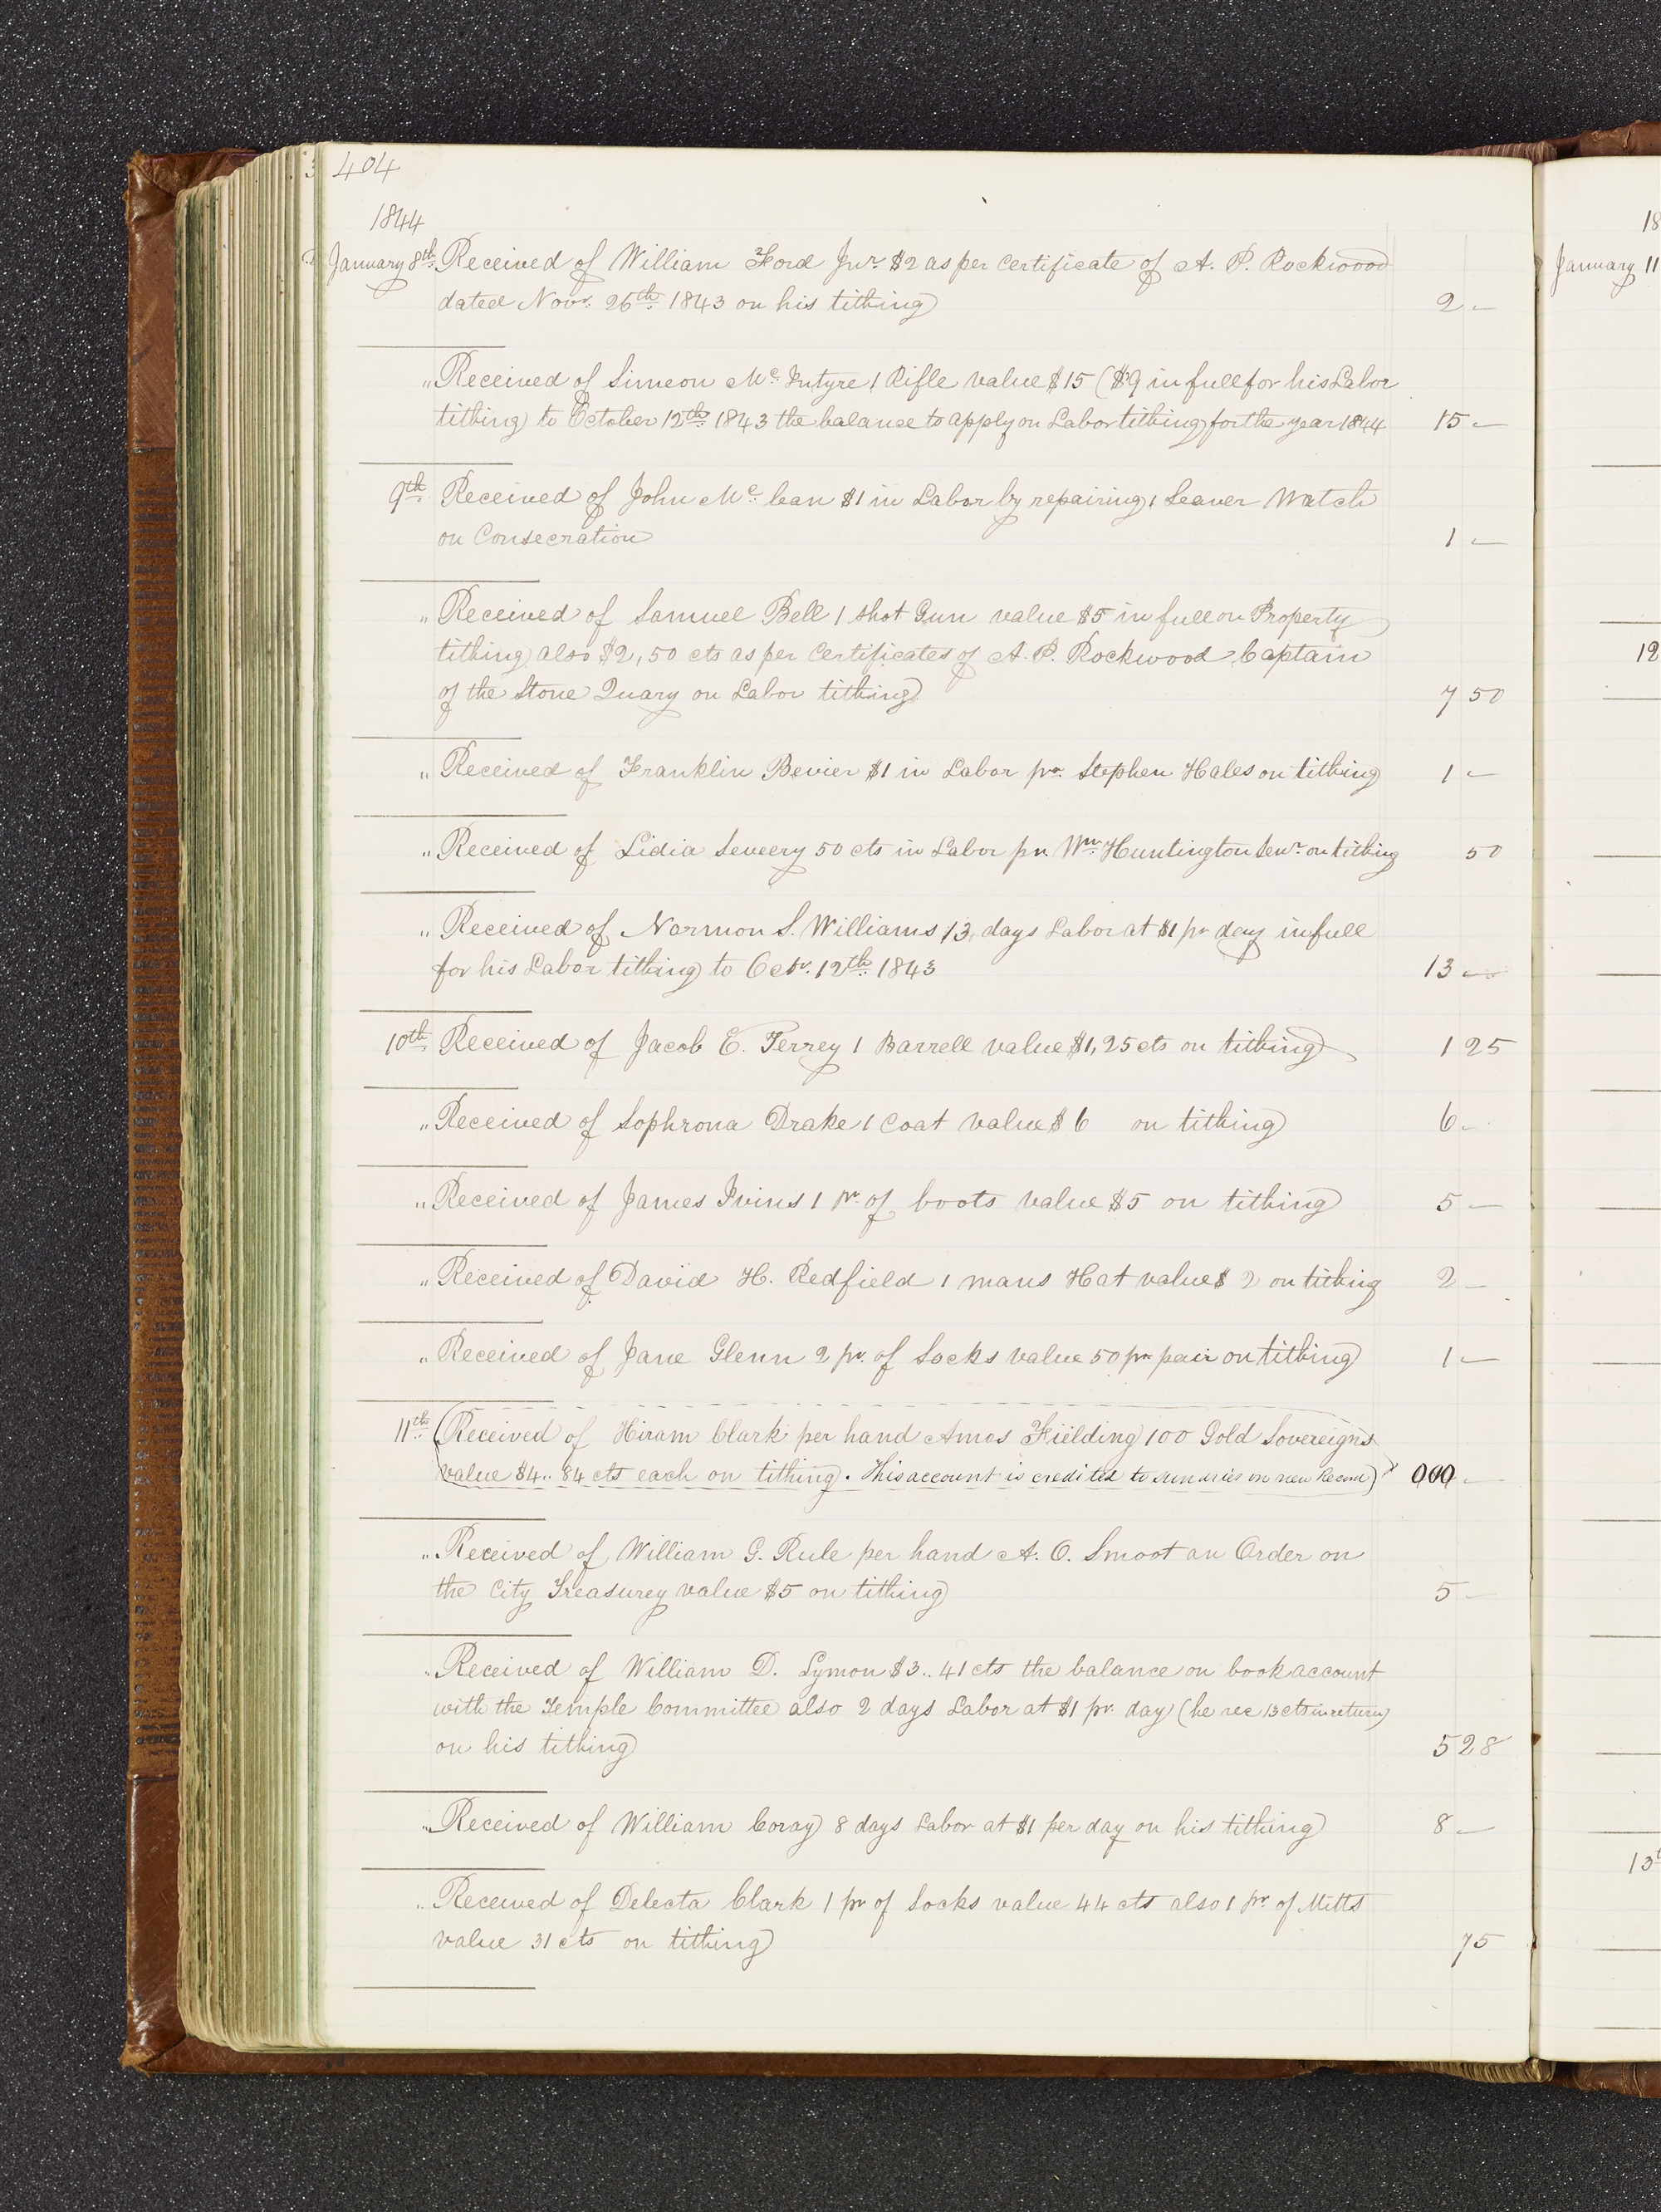 404
1844
January 8th. Received of William Ford Jnr. $2 as per Certificate of A. P. Rockwood
dated Novr. 26th. 1843 on his tithing 2 -
" Received of Simeon Mc. Intyre 1 Rifle value $15 ($9 in full for his Labor
tithing to October 12th. 1843 the balance to apply on Labor tithing for the year 1844 15 -
9th. Received of John Mc. lean $1 in Labor by repairing 1 Leaver Watch
on Consecration 1 -
" Received of Samuel Bell 1 shot Gun value $5 in full on Property
tithing also $2,50 cts as per Certificates of A. P. Rockwood Captain
of the Stone Quary on Labor tithing 7 50
" Received of Franklin Bevier $1 in Labor pr. Stephen Hales on tithing 1 -
" Received of Lidia Seveery 50 cts in Labor pr. Wm. Huntington Senr. on tithing 50
" Received of Normon S. Williams 13 days Labor at $1 pr day in full
for his Labor tithing to Octr. 12th. 1843 13 -
10th. Received of Jacob E. Terrey 1 Barrell value $1,25 cts on tithing 1 25
" Received of Sophrona Drake 1 Coat value $6 on tithing 6 -
" Received of James Ivins 1 pr. of boots value $5 on tithing 5 -
" Received of David H. Redfield 1 mans Hat value $ 2 on tithing 2 -
" Received of Jane Glenn 2 pr. of Socks value 50 pr pair on tithing 1 -
11th. (Received of Hiram Clark per hand Amos Fielding 100 Gold Sovereigns
value $4.. 84 cts each on tithing. This account is credited to sundries in new Record) 000 -
" Received of William G. Rule per hand A. O. Smoot an Order on
the City Treasurey value $5 on tithing 5 -
" Received of William D. Lymon $3.. 41 cts the balance on book account
with the Temple Committee also 2 days Labor at $1 pr. day (he rec 13 cts in return)
on his tithing 5 28
" Received of William Coray 8 days Labor at $1 per day on his tithing 8 -
" Received of Delecta Clark 1 pr of Socks value 44 cts also 1 pr. of Mitts
value 31 cts on tithing 75
18
January 11
12
13t